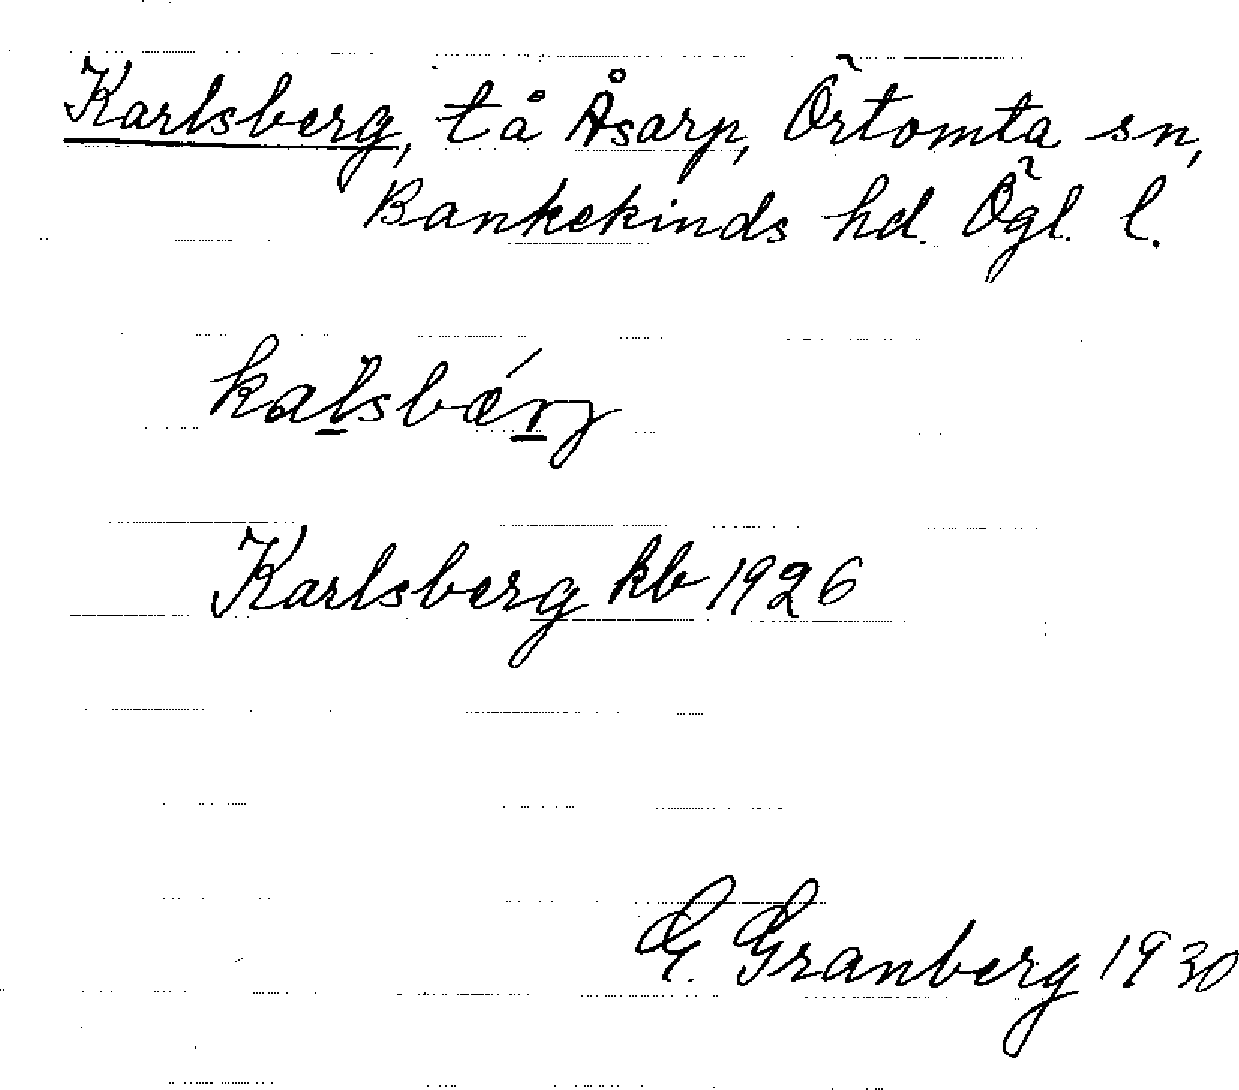 Karlsberg, tå Åsarp, Örtomta sn,
Bankekinds hd. Ögl. l.
kal̠sbǽr̠j
Karlsberg kb 1926
G. Granberg 1930